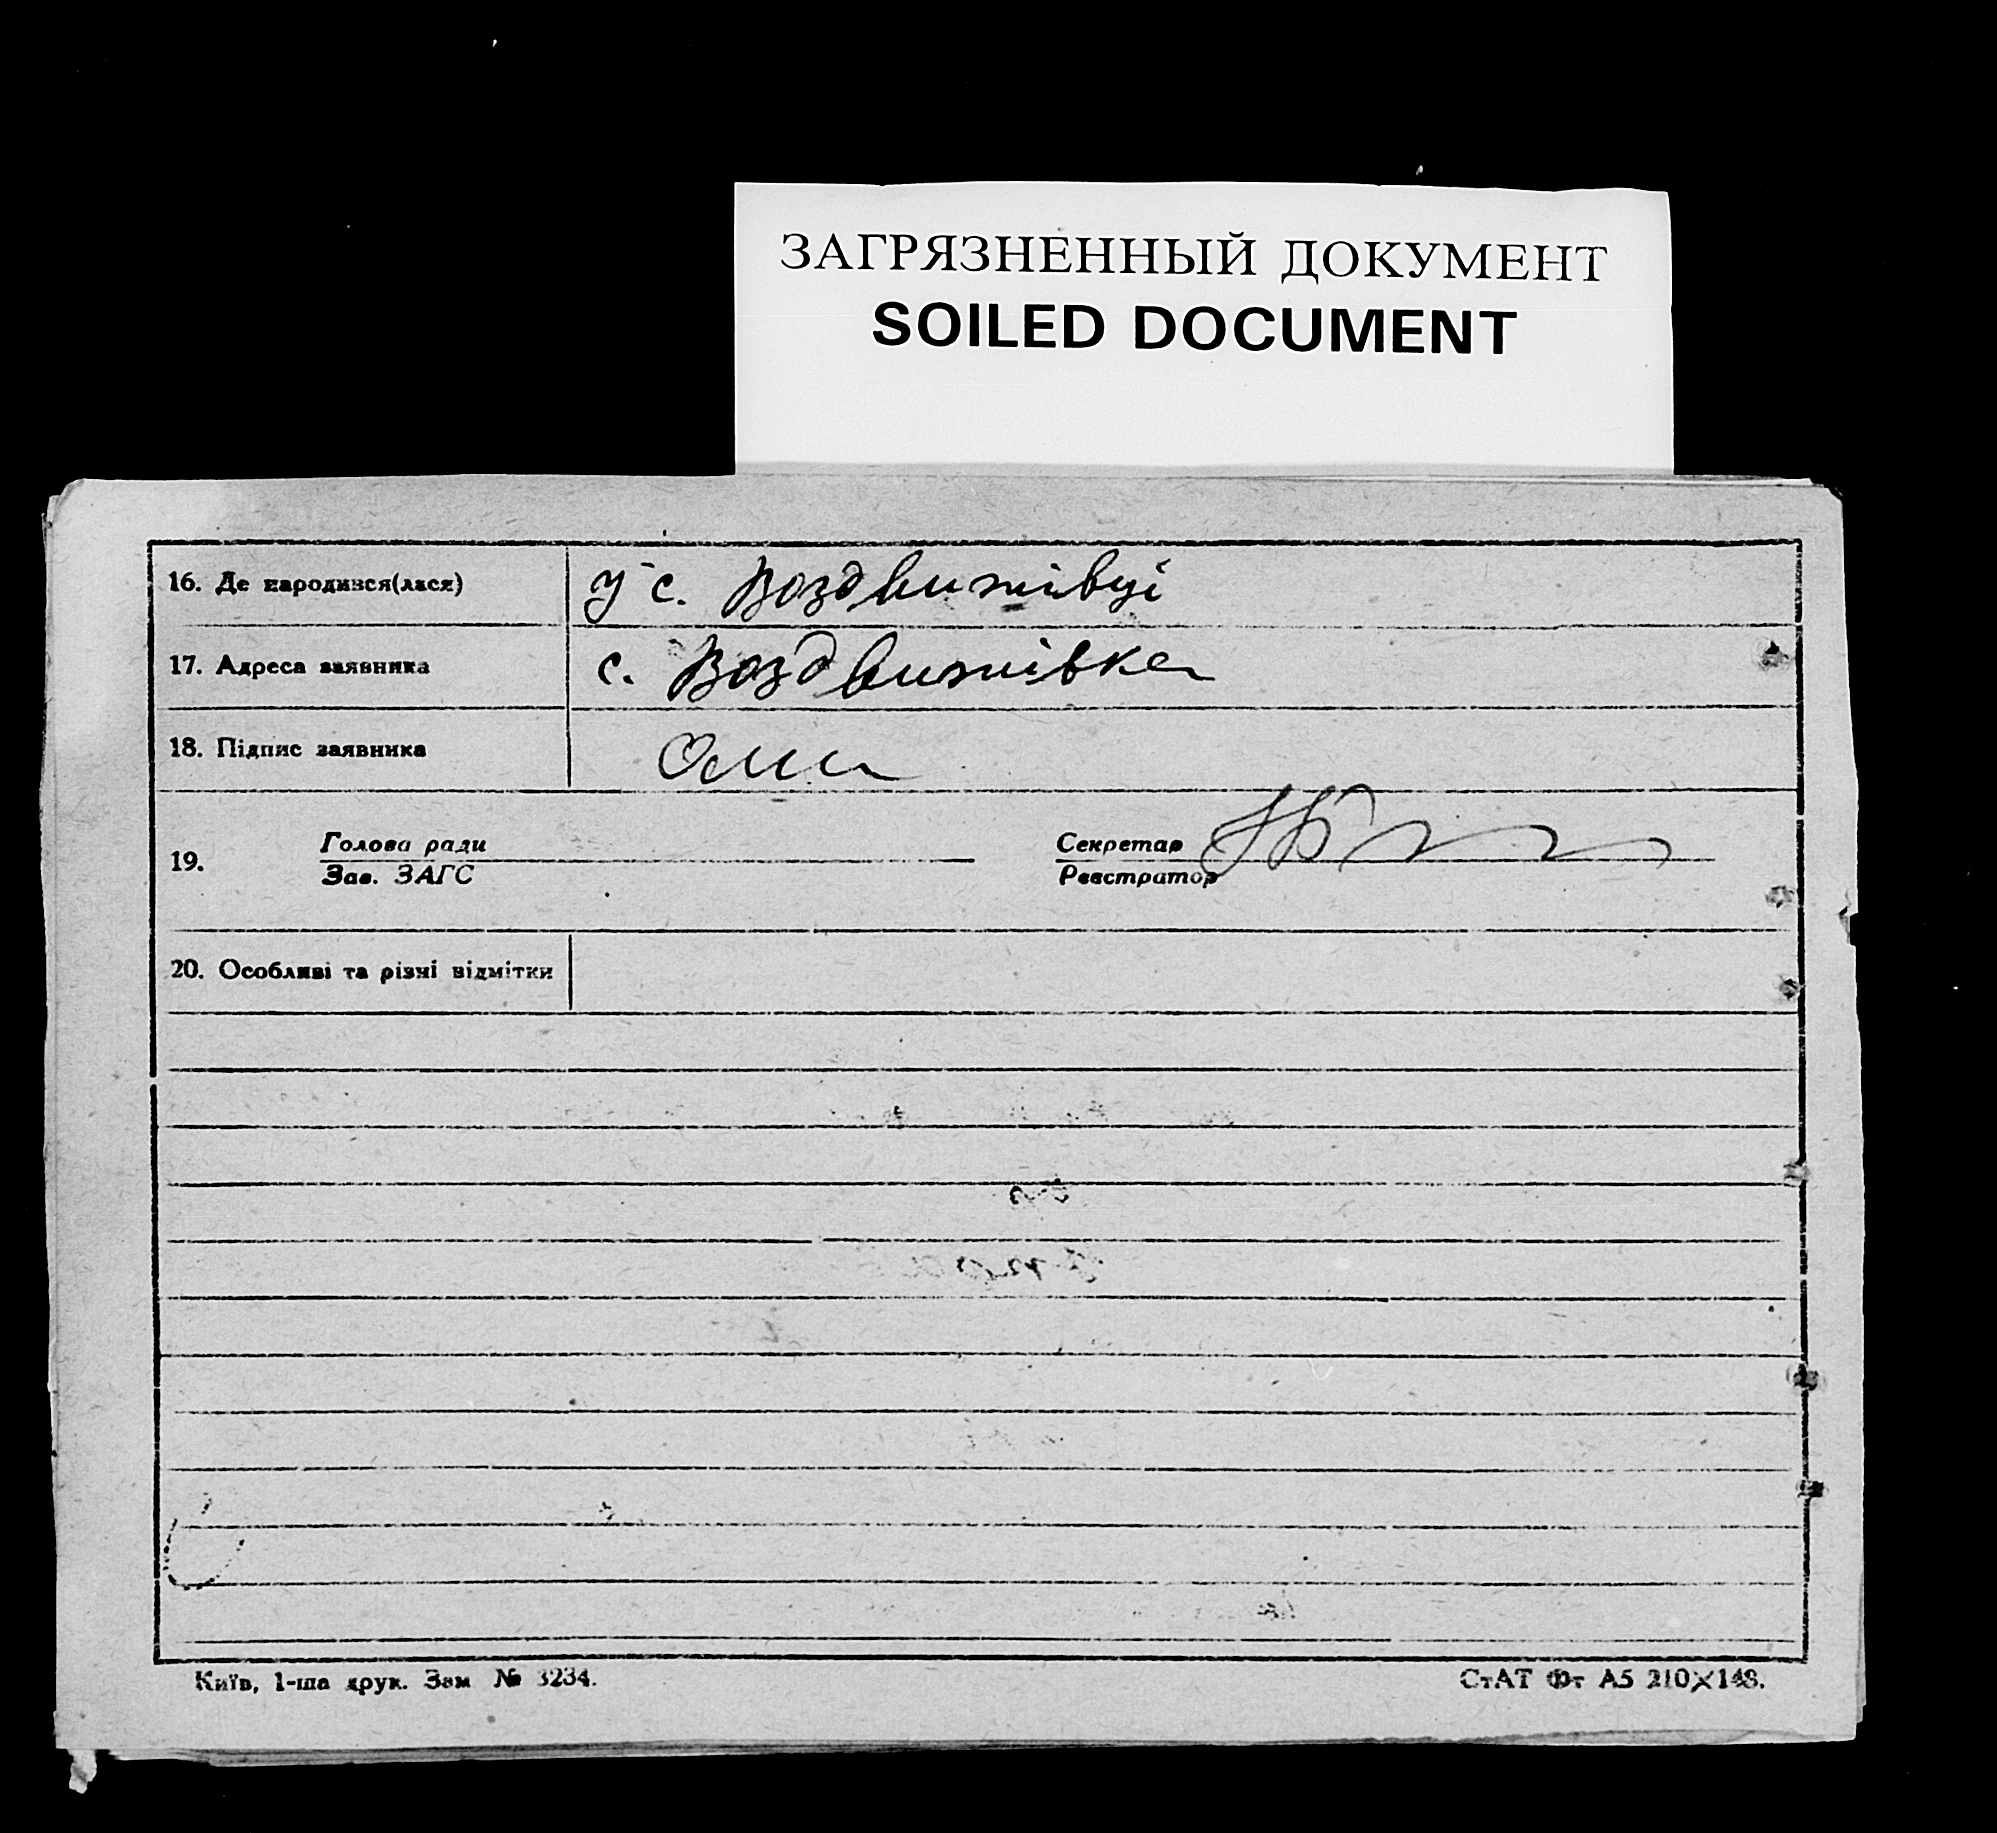 ЗАГРЯЗНЕННЫЙ ДОКУМЕНТ
SOILED DOCUMENT
16. Де народився(лася) у с. Воздвижівці
17. Адреса заявника с. Воздвижівка
18. Підпис заявника
19. Голова ради Секретар
Зав. ЗАГС Реєстратор
20. Особливі та різні відмітки
Київ, 1-ша друк. Зам № 3234. СтАТ Фт А5 210×148.